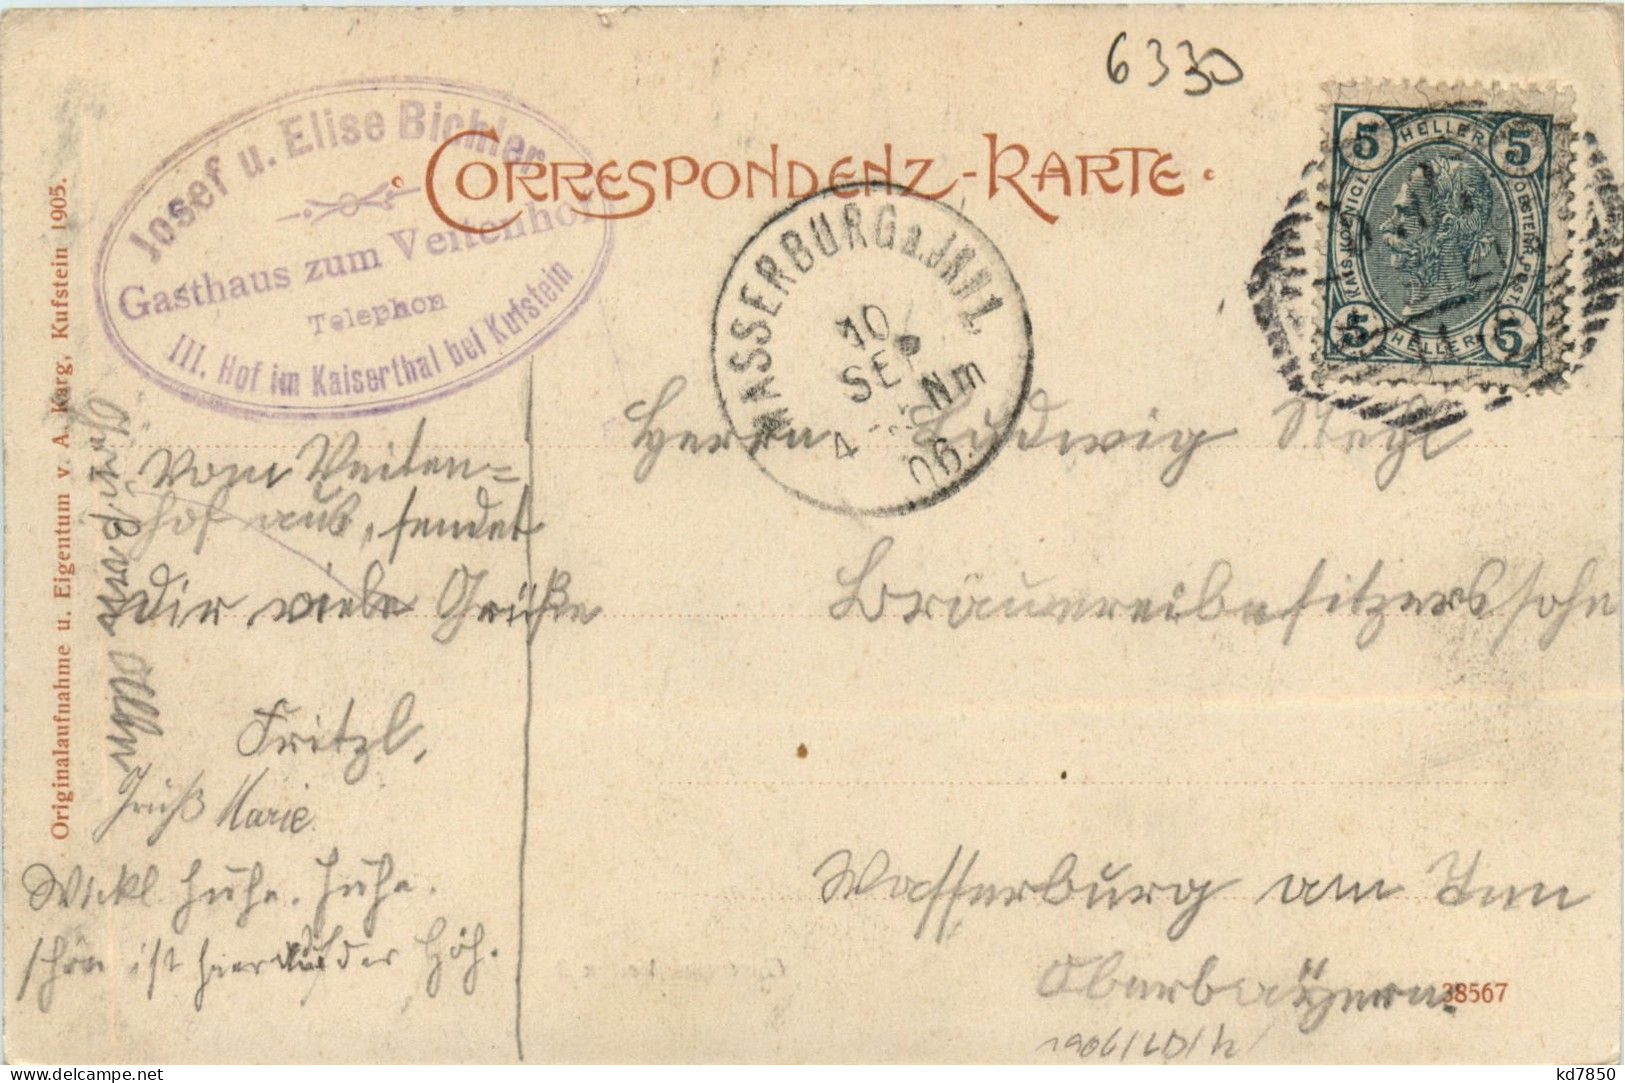 6330
CORRESPONDENZ-KARTE
Josef u. Elise Bichler
Gasthaus zum Veitenhof
Telephon
III. Hof im Kaiserthal bei Kufstein
WASSERBURG a. INN 1.
10
SEP
4 Nm
06
5 HELLER 5
KAIS. KOENIGL. OESTERR. POST.
5 HELLER 5
Originalaufnahme u. Eigentum v. A. Karg, Kufstein 1905.
Herrn Ludwig Stegl
Bräuereibesitzerssohn
Wasserburg am Inn
Oberbayern
38567
Vom Veiten=
hof aus, sendet
Dir viele Grüße
Fritzl.
Gruß Marie
schön ist hier auf der Höh.
kd7850